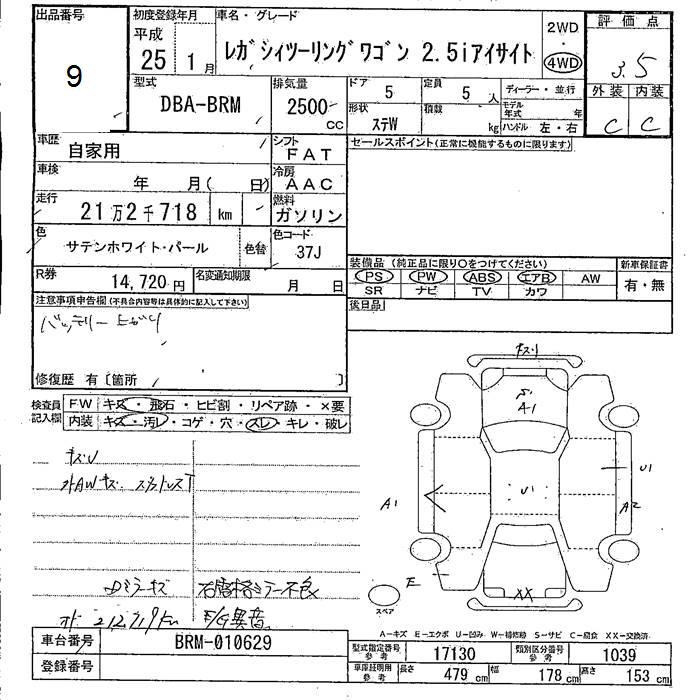 出品番号 初度登録年月 車名・グレード 評価点
9 平成 25 1月 レガシィツーリングワゴン 2.5iアイサイト 2WD・4WD 3.5
型式 排気量 ドア 定員 ディーラー・並行 外装 内装
DBA-BRM 2500 CC 5 5人 モデル年式 年 C C
形状 ステW 積載 kg ハンドル 左・右
車歴 自家用 シフト FAT セールスポイント(正常に機能するものに限ります)
車検 年 月( 日) 冷房 AAC
走行 21万2千718 km 燃料 ガソリン
色 サテンホワイト・パール 色替 色コード 37J
装備品 (純正品に限り○をつけてください) 新車保証書
R券 14,720円 名変通知期限 月 日
PS PW ABS エアB AW 有・無
SR ナビ TV カワ
注意事項申告欄(不具合内容等は具体的に記入して下さい) 後日品
バッテリー
修復歴 有〔箇所 〕
キズU
検査員記入欄 FW キズ・飛石・ヒビ割・リペア跡・×要
内装 キズ・汚レ・コゲ・穴・スレ・キレ・破レ
A1
キズU U1
外AWキズ スタットレス
U1
A1 A2
Dミラーキズ 右電格ミラー不良 E XX
スペア
メーター 212719km E/G異音
A-キズ E-エクボ U-凹み W-補修跡 S-サビ C-腐食 XX-交換済
車台番号 BRM-010629
型式指定番号 参考 17130 類別区分番号 参考 1039
登録番号
車庫証明用 参考 長さ 479 cm 幅 178 cm 高さ 153 cm